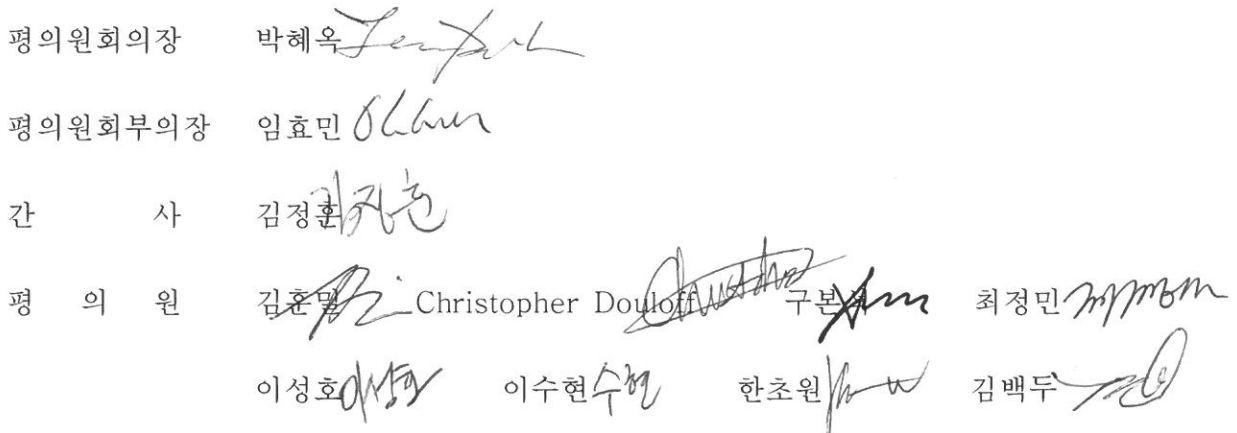 평의원회의장 박혜옥
평의원회부의장 임효민
간 사 김정훈 김정훈
평 의 원 김훈밀 Christopher Douloff 구본 최정민
이성호 이성호 이수현 수현 한초원 김백두